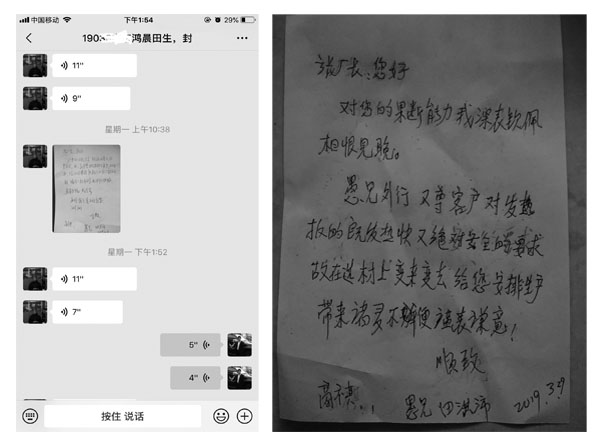 中国移动
下午1:54
29%
190
鸿晨田生，封
11"
9"
星期一 上午10:38
星期一 下午1:52
11"
7"
5"
4"
按住 说话
张厂长:您好
对您的果断能力我深表钦佩
相恨见晚。
愚兄外行又尊客户对发热
板的既发热快又绝对安全的要求
故在选材上变来变去给您安排生产
带来诸多不便谨表谦意!
顺致
商祺!
愚兄 田洪沛 2019.3.9